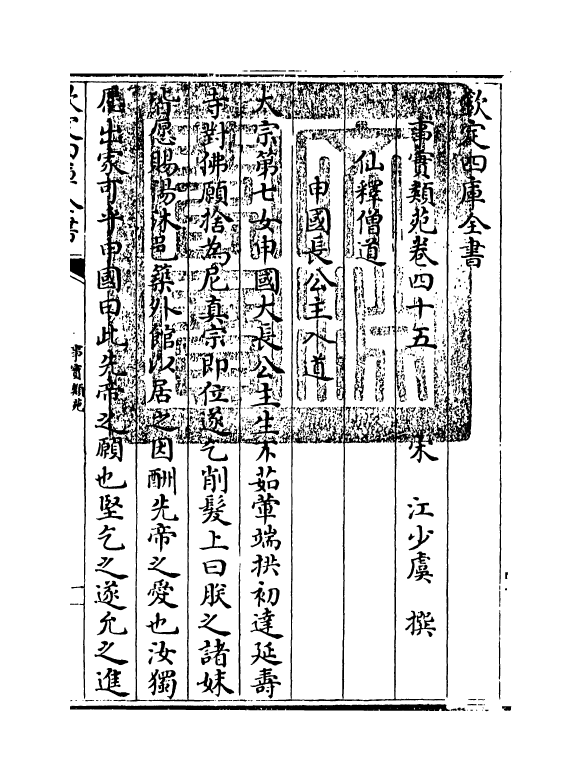 欽定四庫全書
事實類苑卷四十五 宋 江少虞 撰
仙釋僧道
申國長公主入道
太宗第七女申國大長公主生不茹葷端拱初達延壽
寺對佛願捨為尼真宗即位遂乞削髮上曰朕之諸妹
皆愿賜湯沐邑築外館以居之因酬先帝之愛也汝獨
愿出家可乎申國曰此先帝之願也堅乞之遂允之進
欽定四庫全書
事實類苑